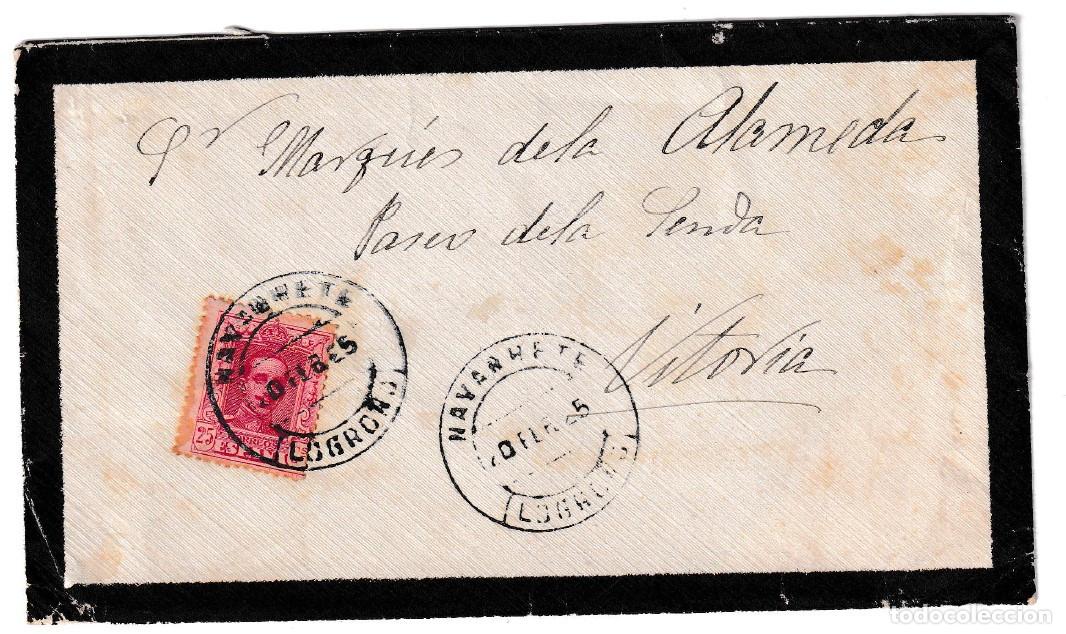 Sr Marqués de la Alameda
Paseo de la Senda
Vitoria
NAVARRETE
FEB 25
(LOGROÑO)
25
CORREOS
ESPAÑA
NAVARRETE
FEB 25
(LOGROÑO)
todocoleccion